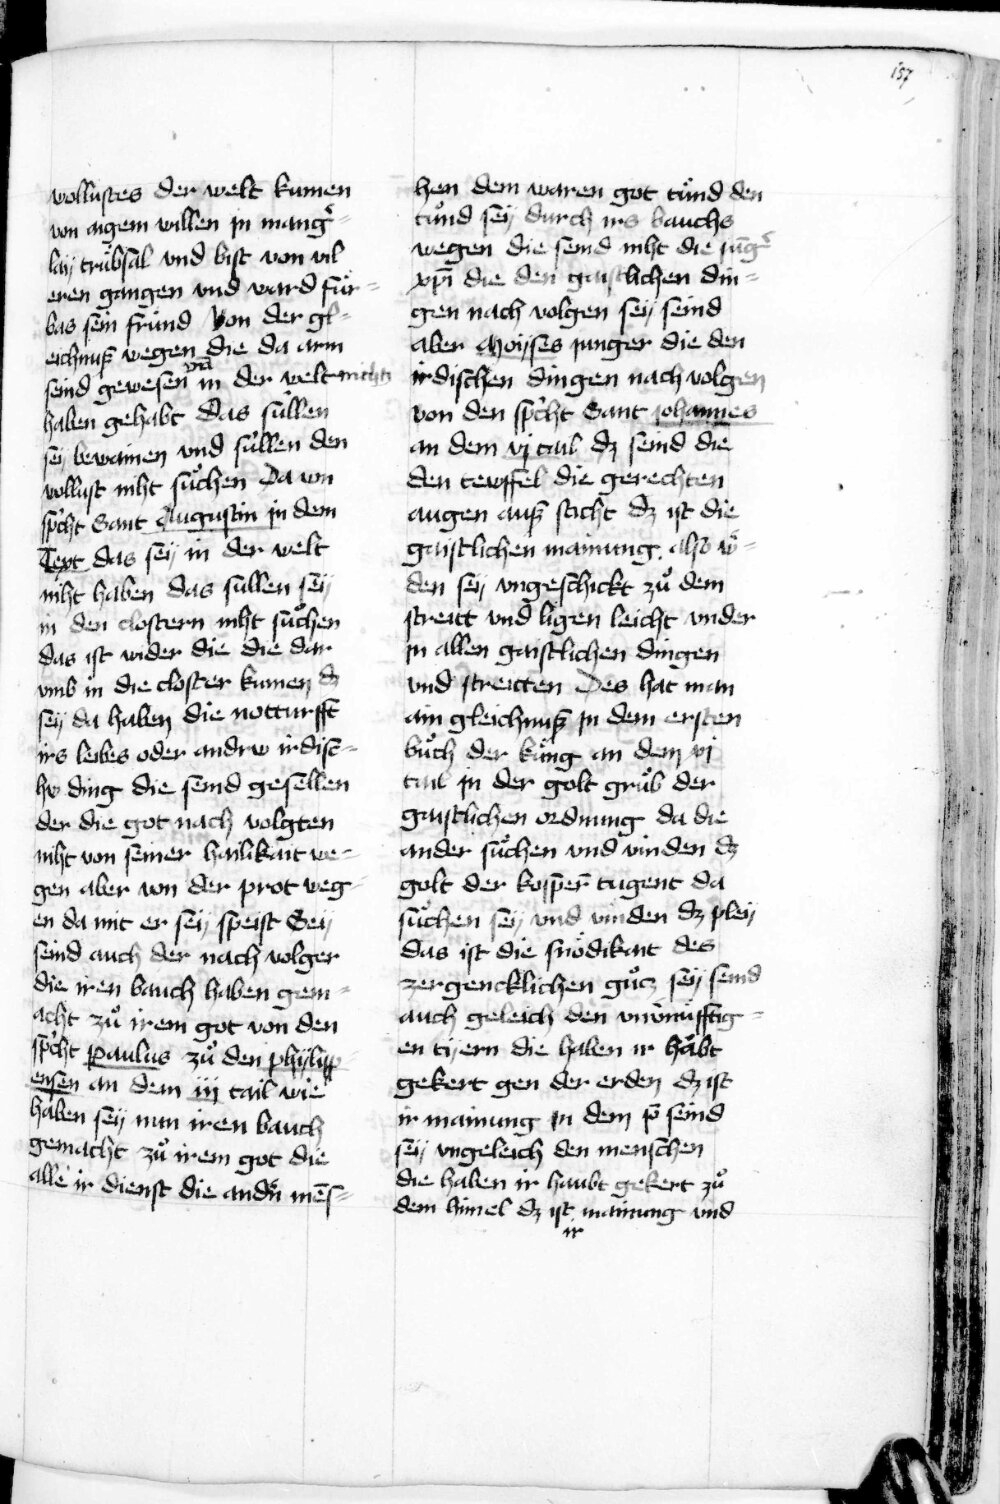 157
wollustes der welt kumen
von aigem willen in mang͛=
lay trübsal vnd bist von vil
eren gangen vnd ward für=
bas sein fründ Von der gl=
eichnuß wegen die da arm
seind gewesen vnd in der welt nichtz
haben gehabt das süllen
sey bewainen vnd süllen den
wollust niht suͦchen Da von
sp͛cht Sant Augustin in dem
Text das sey in der welt
niht haben das sullen sey
in den clostern niht suͦchen
das ist wider die die dar
vmb in die closter kumen dz
sey da haben die notturfft
irs leibes oder andrw irdisc=
hv ding die seind gesellen
der die got nach volgten
niht von seiner hailikait we=
gen aber von der prot weg=
en da mit er sey speist Sey
seind auch der nach volger
die iren bauch haben gem=
acht zuͦ irem got von den
sp͛cht Paulus zuͦ den phylipp=
ensen an dem iij tail wie
haben sey nun iren bauch
gemacht zuͦ irem got die
alle ir dienst die andn̄ mēs=
hen dem waren got tuͦnd den
tuͦnd sey durch irs bauchs
wegen die seind niht die jūg͛
xpī die den gaistlichen din=
gen nach volgen sey seind
aber Moyses junger die den
irdischen dingen nach volgen
von den sp͛cht Sant johannes
an dem vj tail dz seind die
den tewffel die gerechten
augen auß sticht dz ist die
gaistlichen mainung. also w͛=
den sey vngeschickt zuͦ dem
streitt vnd ligen leicht vnder
in allen gaistlichen dingen
vnd streitten Des hat man
ain gleichnuß in dem ersten
buͦch der küng an dem vj
tail in der golt gruͦb der
gaistlichen ordnung da die
ander suͦchen vnd vinden dz
golt der kosp̄er tugent da
suͦchen sey vnd vinden dz pley
das ist die snödikait des
zergencklichen guͦcz sey seind
auch geleich den vnv͛nüfftig=
en tyern die haben ir häbt
gekert gen der erden dz ist
ir mainung in dem p̄ seind
sey vngeleich den menschen
die haben ir haubt gekert zuͦ
dem himel dz ist ir mainung vnd